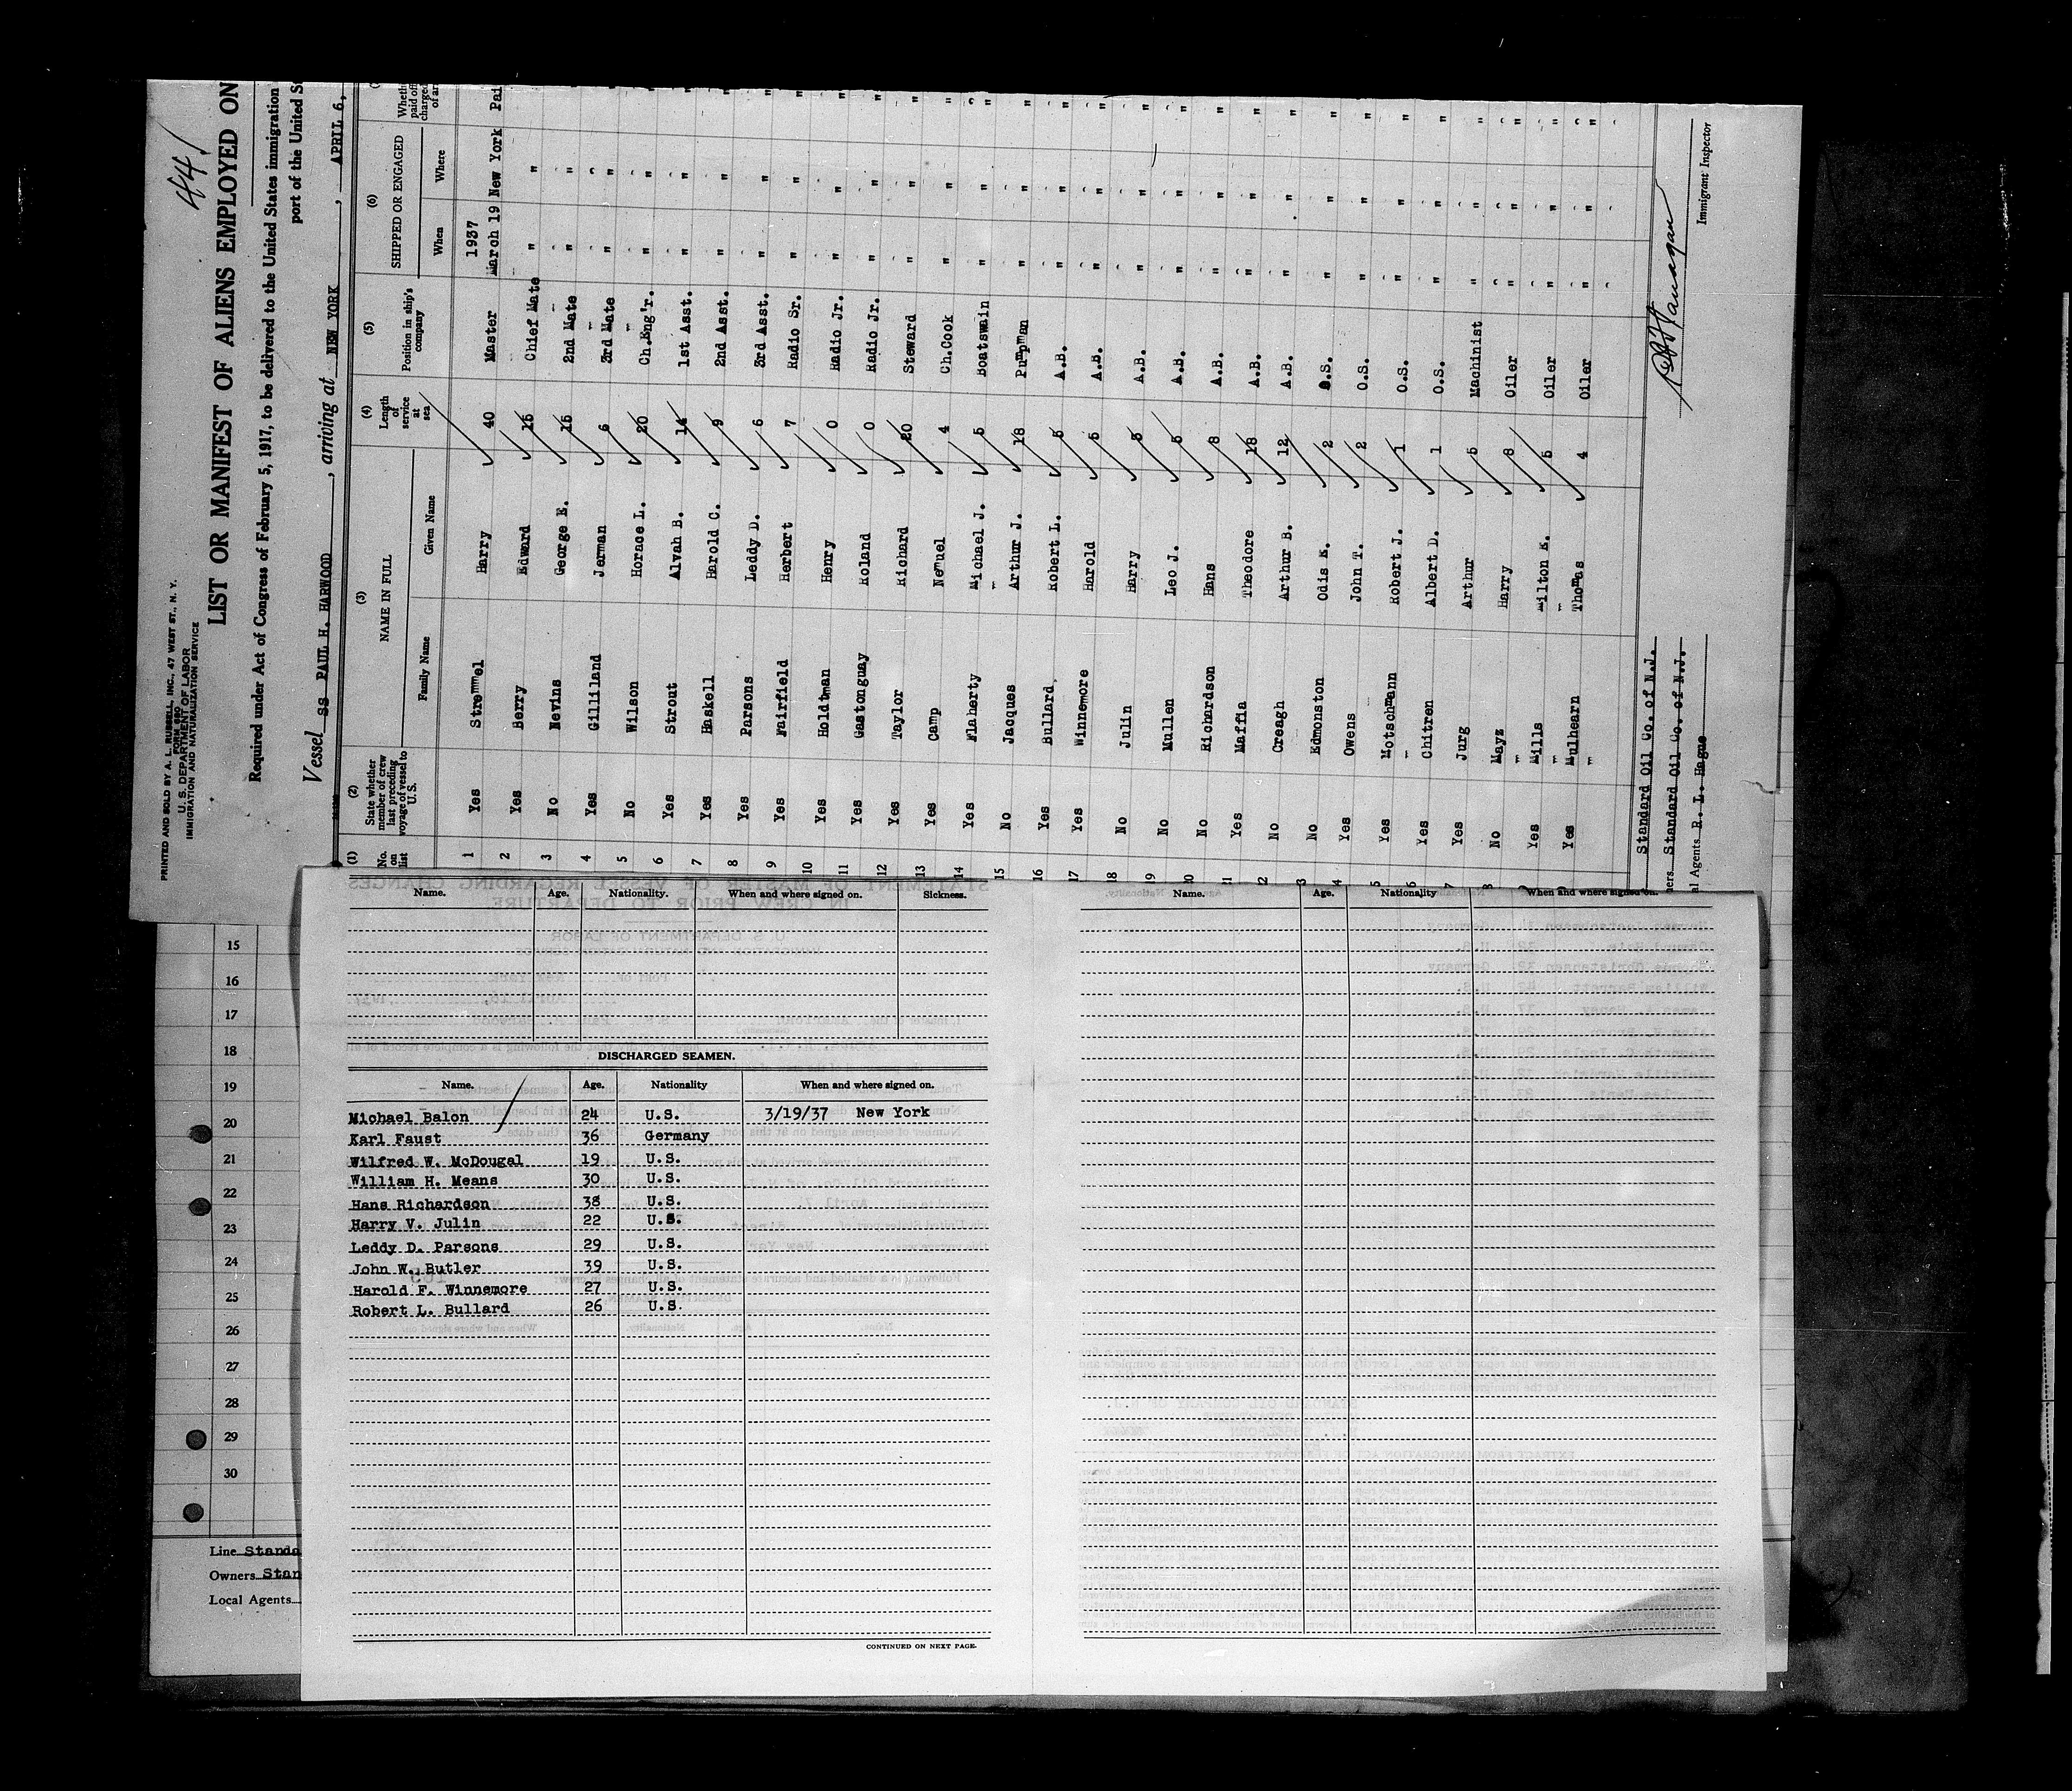 441
PRINTED AND SOLD BY A. L. RUSSELL, INC., 47 WEST ST., N. Y.
FORM 680
U. S. DEPARTMENT OF LABOR
IMMIGRATION AND NATURALIZATION SERVICE
LIST OR MANIFEST OF ALIENS EMPLOYED ON
Required under Act of Congress of February 5, 1917, to be delivered to the United States immigration
port of the United S
Vessel SS PAUL H. HARWOOD, arriving at NEW YORK, APRIL 6,
(1) (2) (3) (4) (5) (6)
No. on list State whether member of crew last preceding voyage of vessel to U.S. NAME IN FULL Length of service at sea Position in ship's company SHIPPED OR ENGAGED
Family Name Given Name When Where
1937
1 Yes Stremmel Harry 40 Master March 19 New York Pai
2 Yes Berry Edward 15 Chief Mate " " "
3 No Nevins George E. 15 2nd Mate " " "
4 Yes Gilliland Jerman 6 3rd Mate " " "
5 No Wilson Horace L. 20 Ch.Eng'r. " " "
6 Yes Strout Alvah B. 14 1st Asst. " " "
7 Yes Haskell Harold C. 9 2nd Asst. " " "
8 Yes Parsons Leddy D. 6 3rd Asst. " " "
9 Yes Fairfield Herbert 7 Radio Sr. " " "
10 Yes Holdtman Henry 0 Radio Jr. " " "
11 Yes Gastonguay Roland 0 Radio Jr. " " "
12 Yes Taylor Richard 20 Steward " " "
13 Yes Camp Nemuel 4 Ch.Cook " " "
14 Yes Flaherty Michael J. 5 Boatswain " " "
15 No Jacques Arthur J. 18 Pumpman " " "
16 Yes Bullard Robert L. 5 A.B. " " "
17 Yes Winnemore Harold 5 A.B. " " "
18 No Julin Harry 5 A.B. " " "
19 No Mullen Leo J. 5 A.B. " " "
20 No Richardson Hans 8 A.B. " " "
21 Yes Maffia Theodore 18 A.B. " " "
22 No Creagh Arthur B. 12 A.B. " " "
3 No Edmonston Odis E. 2 O.S. " " "
4 Yes Owens John T. 2 O.S. " " "
5 Yes Motschmann Robert J. 1 O.S. " " "
6 Yes Chitren Albert D. 1 O.S. " " "
7 Yes Jurg Arthur 5 Machinist " " "
8 No Mayz Harry 8 Oiler " " "
Yes Mills Milton E. 5 Oiler " " "
Yes Mulhearn Thomas 4 Oiler " " "
Standard Oil Co. of N.J.
ners Standard Oil Co. of N.J.
al Agents R. L. Hague
Immigrant Inspector
Name. Age. Nationality. When and where signed on. Sickness.
DISCHARGED SEAMEN.
Name. Age. Nationality When and where signed on.
Michael Balon 24 U.S. 3/19/37 New York
Karl Faust 36 Germany
Wilfred W. McDougal 19 U.S.
William H. Means 30 U.S.
Hans Richardson 38 U.S.
Harry V. Julin 22 U.S.
Leddy D. Parsons 29 U.S.
John W. Butler 39 U.S.
Harold F. Winnemore 27 U.S.
Robert L. Bullard 26 U.S.
CONTINUED ON NEXT PAGE.
Name. Age. Nationality When and where signed on.
15
16
17
18
19
20
21
22
23
24
25
26
27
28
29
30
Line Standa
Owners Stan
Local Agents